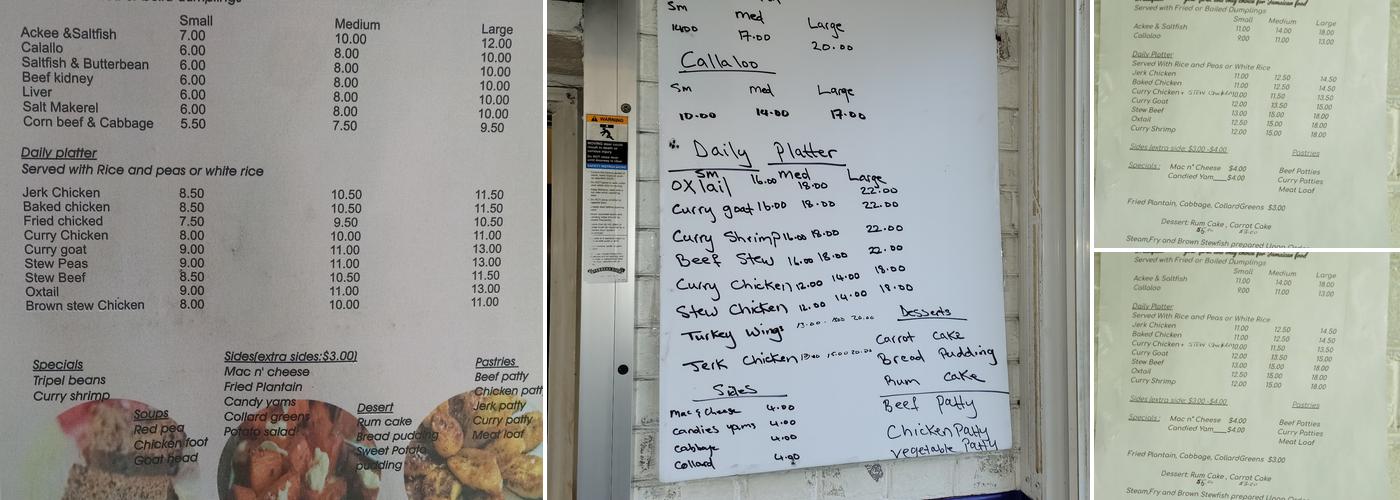 Small Medium Large
Ackee &Saltfish 7.00 10.00 12.00
Calallo 6.00 8.00 10.00
Saltfish & Butterbean 6.00 8.00 10.00
Beef kidney 6.00 8.00 10.00
Liver 6.00 8.00 10.00
Salt Makerel 6.00 8.00 10.00
Corn beef & Cabbage 5.50 7.50 9.50
Daily platter
Served with Rice and peas or white rice
Jerk Chicken 8.50 10.50 11.50
Baked chicken 8.50 10.50 11.50
Fried chicked 7.50 9.50 10.50
Curry Chicken 8.00 10.00 11.00
Curry goat 9.00 11.00 13.00
Stew Peas 9.00 11.00 13.00
Stew Beef 8.50 10.50 11.50
Oxtail 9.00 11.00 13.00
Brown stew Chicken 8.00 10.00 11.00
Specials
Tripel beans
Curry shrimp
Soups
Red pea
Chicken foot
Goat head
Sides(extra sides:$3.00)
Mac n' cheese
Fried Plantain
Candy yams
Collard greens
Potato salad
Desert
Rum cake
Bread pudding
Sweet Potato
pudding
Pastries
Beef patty
Chicken patt
Jerk patty
Curry patty
Meat loaf
Sm med Large
14.00 17.00 20.00
Callaloo
Sm med Large
10.00 14.00 17.00
Daily Platter
Sm med Large
Oxtail 16.00 18.00 22.00
Curry goat 16.00 18.00 22.00
Curry Shrimp 16.00 18.00 22.00
Beef Stew 16.00 18.00 22.00
Curry Chicken 12.00 14.00 18.00
Stew Chicken 12.00 14.00 18.00
Turkey Wings
Jerk Chicken
Sides
Mac & Cheese 4.00
candies yams 4.00
cabbage 4.00
Collard 4.00
Desserts
Carrot Cake
Bread Pudding
Rum Cake
Beef Patty
Chicken Patty
vegetable Patty
WARNING
Served with Fried or Boiled Dumplings
Small Medium Large
Ackee & Saltfish 11.00 14.00 18.00
Callaloo 9.00 11.00 13.00
Daily Platter
Served With Rice and Peas or White Rice
Jerk Chicken 11.00 12.50 14.50
Baked Chicken 11.00 12.50 14.50
Curry Chicken + STEW Chicken 10.00 11.50 13.50
Curry Goat 12.00 13.50 18.00
Stew Beef 12.00 15.00 18.00
Oxtail 12.50 15.00 18.00
Curry Shrimp 12.00 15.00 18.00
Sides (extra side: $3.00 -$4.00)
Pastries
Specials: Mac n" Cheese $4.00 Beef Patties
Candied Yam___$4.00 Curry Patties
Meat Loaf
Fried Plantain, Cabbage, CollardGreens $3.00
Dessert: Rum Cake , Carrot Cake
Steam,Fry and Brown Stewfish prepared Upon
Served with Fried or Boiled Dumplings
Small Medium Large
Ackee & Saltfish 11.00 14.00 18.00
Callaloo 9.00 11.00 13.00
Daily Platter
Served With Rice and Peas or White Rice
Jerk Chicken 11.00 12.50 14.50
Baked Chicken 11.00 12.50 14.50
Curry Chicken + STEW Chicken 10.00 11.50 13.50
Curry Goat 12.00 13.50 18.00
Stew Beef 12.00 15.00 18.00
Oxtail 12.50 15.00 18.00
Curry Shrimp 12.00 15.00 18.00
Sides (extra side: $3.00 -$4.00)
Pastries
Specials: Mac n" Cheese $4.00 Beef Patties
Candied Yam___$4.00 Curry Patties
Meat Loaf
Fried Plantain, Cabbage, CollardGreens $3.00
Dessert: Rum Cake , Carrot Cake
Steam,Fry and Brown Stewfish prepared Upon